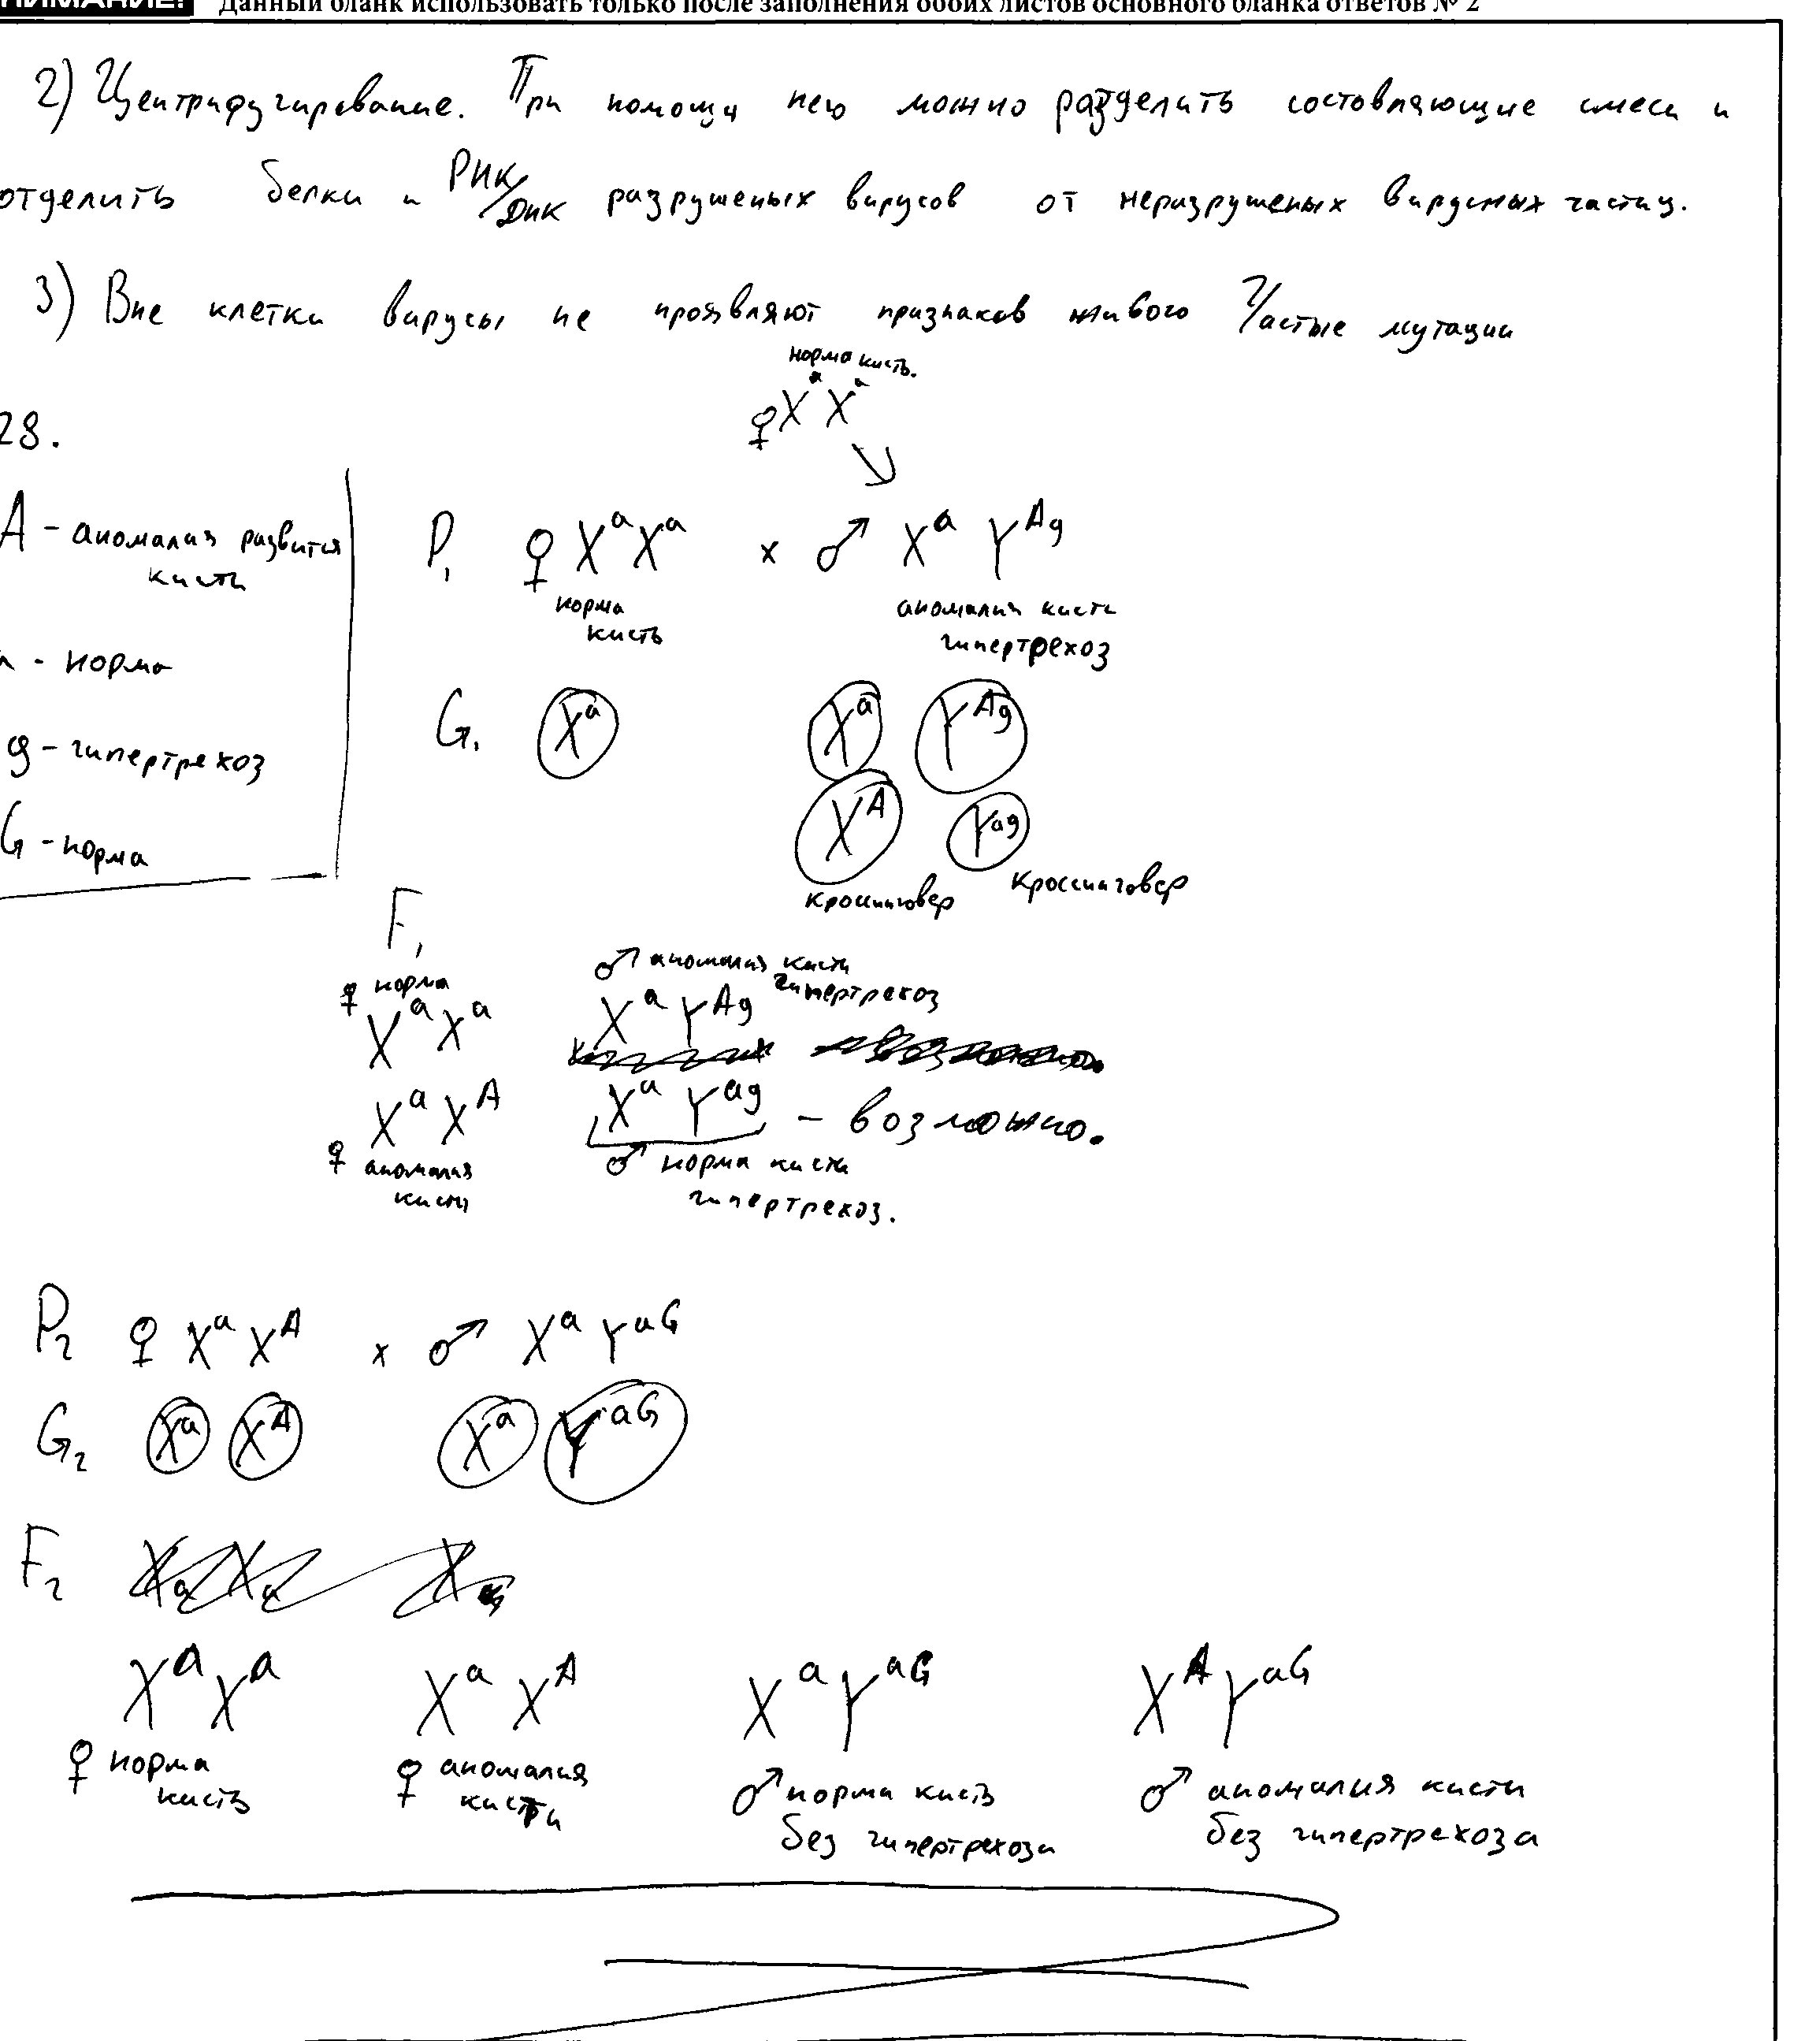 НИМАНИЕ! Данный бланк использовать только после заполнения обоих листов основного бланка ответов № 2
2) Центрифугирование. При помощи него можно разделить состовляющие смеси и
отделить белки и РНК/ДНК разрушеных вирусов от неразрушеных вирусных частиц.
3) Вне клетки вирусы не проявляют признаков живого Частые мутации
норма кисть.
♀ X^a X^a
28.
A - аномалия развития
кисти
а - норма
g - гипертрехоз
G - норма
P₁ ♀ X^a X^a x ♂ X^a Y^Ag
норма кисть аномалия кисти гипертрехоз
G₁ X^a X^a Y^Ag
X^A Y^ag
кроссинговер кроссинговер
F₁
♀ норма ♂ аномалия кисти гипертрехоз
X^a X^a X^a Y^Ag
X^a X^A X^a Y^ag - возможно.
♀ аномалия кисти ♂ норма кисти гипертрехоз.
P₂ ♀ X^a X^A x ♂ X^a Y^aG
G₂ X^a X^A X^a Y^aG
F₂
X^a X^a X^a X^A X^a Y^aG X^A Y^aG
♀ норма кисть ♀ аномалия кисти ♂ норма кисть без гипертрехоза ♂ аномалия кисти без гипертрехоза